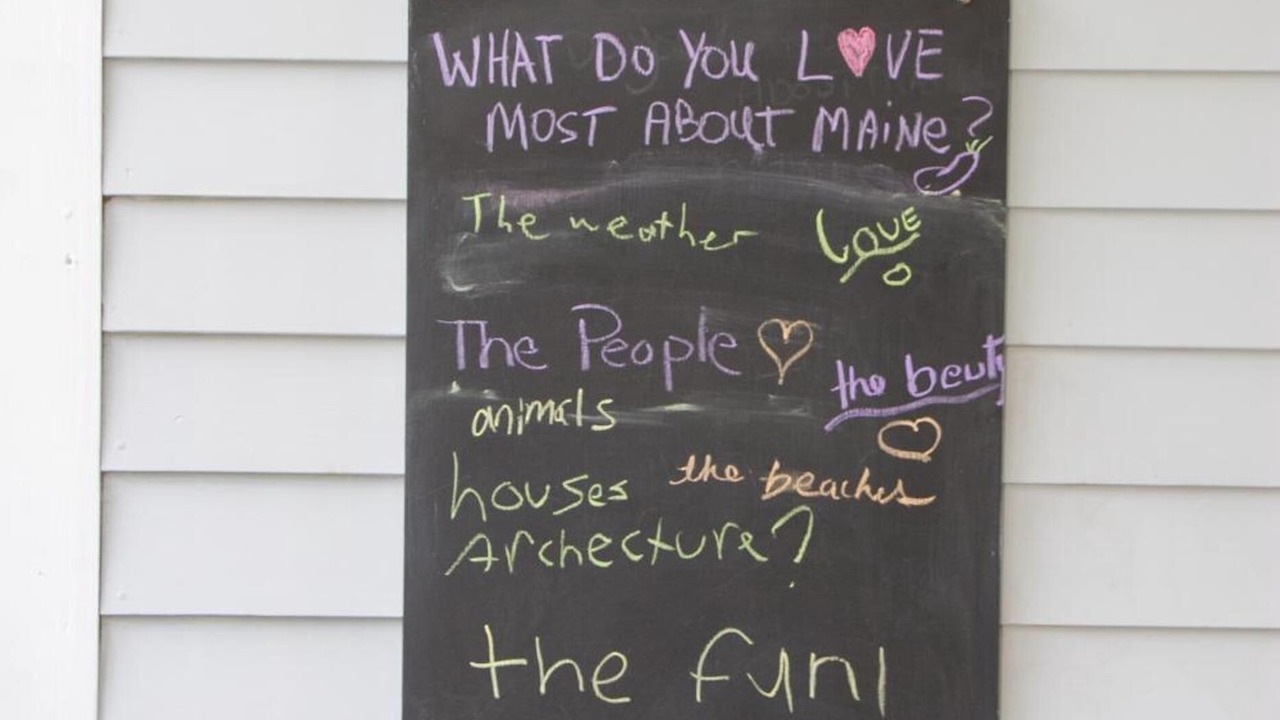 WHAT DO YOU L♥VE
MOST ABOUT MAINE?
The weather LOVE
The People
the beuty
animals
houses the beaches
Archecture?
the fun!